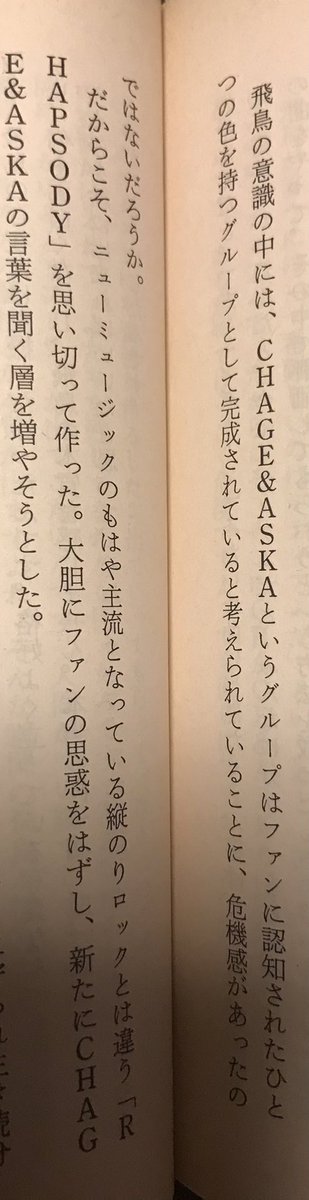 飛鳥の意識の中には、CHAGE&ASKAというグループはファンに認知されたひと
つの色を持つグループとして完成されていると考えられていることに、危機感があったの
ではないだろうか。
だからこそ、ニューミュージックのもはや主流となっている縦のりロックとは違う「R
HAPSODY」を思い切って作った。大胆にファンの思惑をはずし、新たにCHAG
E&ASKAの言葉を聞く層を増やそうとした。